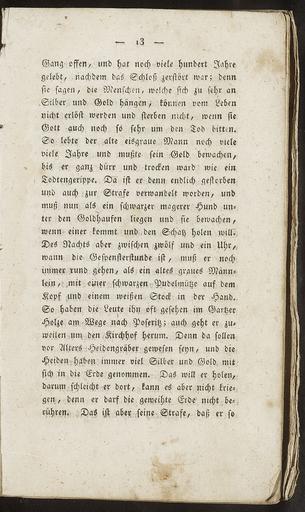 — 13 —
Gang offen, und hat noch viele hundert Jahre
gelebt, nachdem das Schloß zerstört war; denn
sie sagen, die Menschen, welche sich zu sehr an
Silber und Gold hängen, können vom Leben
nicht erlöst werden und sterben nicht, wenn sie
Gott auch noch so sehr um den Tod bitten.
So lebte der alte eisgraue Mann noch viele
viele Jahre und mußte sein Gold bewachen,
bis er ganz dürr und trocken ward wie ein
Todtengerippe. Da ist er denn endlich gestorben
und auch zur Strafe verwandelt worden, und
muß nun als ein schwarzer magerer Hund un-
ter den Goldhaufen liegen und sie bewachen,
wenn einer kommt und den Schatz holen will.
Des Nachts aber zwischen zwölf und ein Uhr,
wann die Gespensterstunde ist, muß er noch
immer rund gehen, als ein altes graues Männ-
lein, mit einer schwarzen Pudelmütze auf dem
Kopf und einem weißen Stock in der Hand.
So haben die Leute ihn oft gesehen im Garzer
Holze am Wege nach Poseritz; auch geht er zu-
weilen um den Kirchhof herum. Denn da sollen
vor Alters Heidengräber gewesen seyn, und die
Heiden haben immer viel Silber und Gold mit
sich in die Erde genommen. Das will er holen,
darum schleicht er dort, kann es aber nicht krie-
gen, denn er darf die geweihte Erde nicht be-
rühren. Das ist aber seine Strafe, daß er so